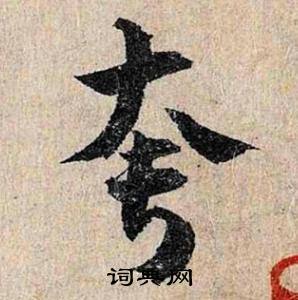 夸
词典网